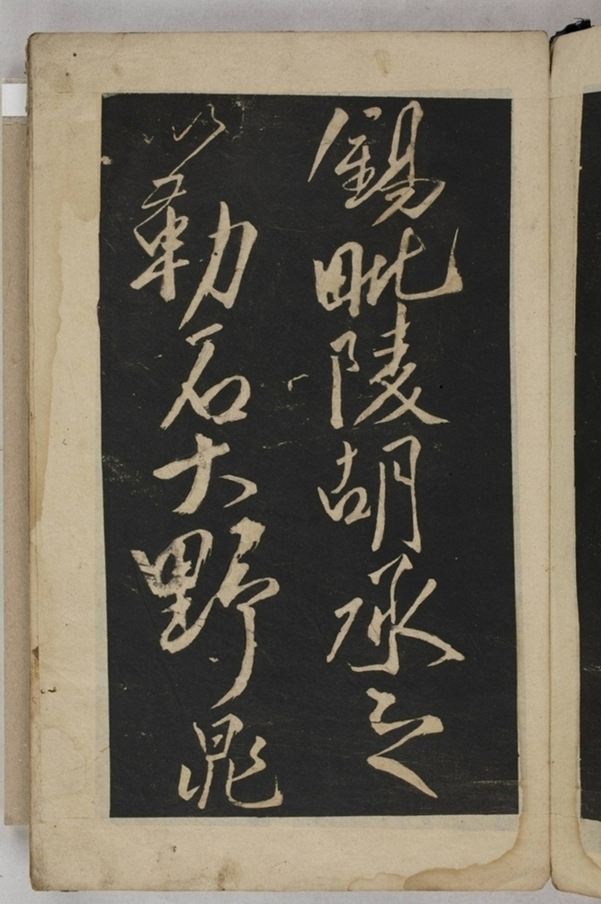 錫毗陵胡承之
以勒石大野晁